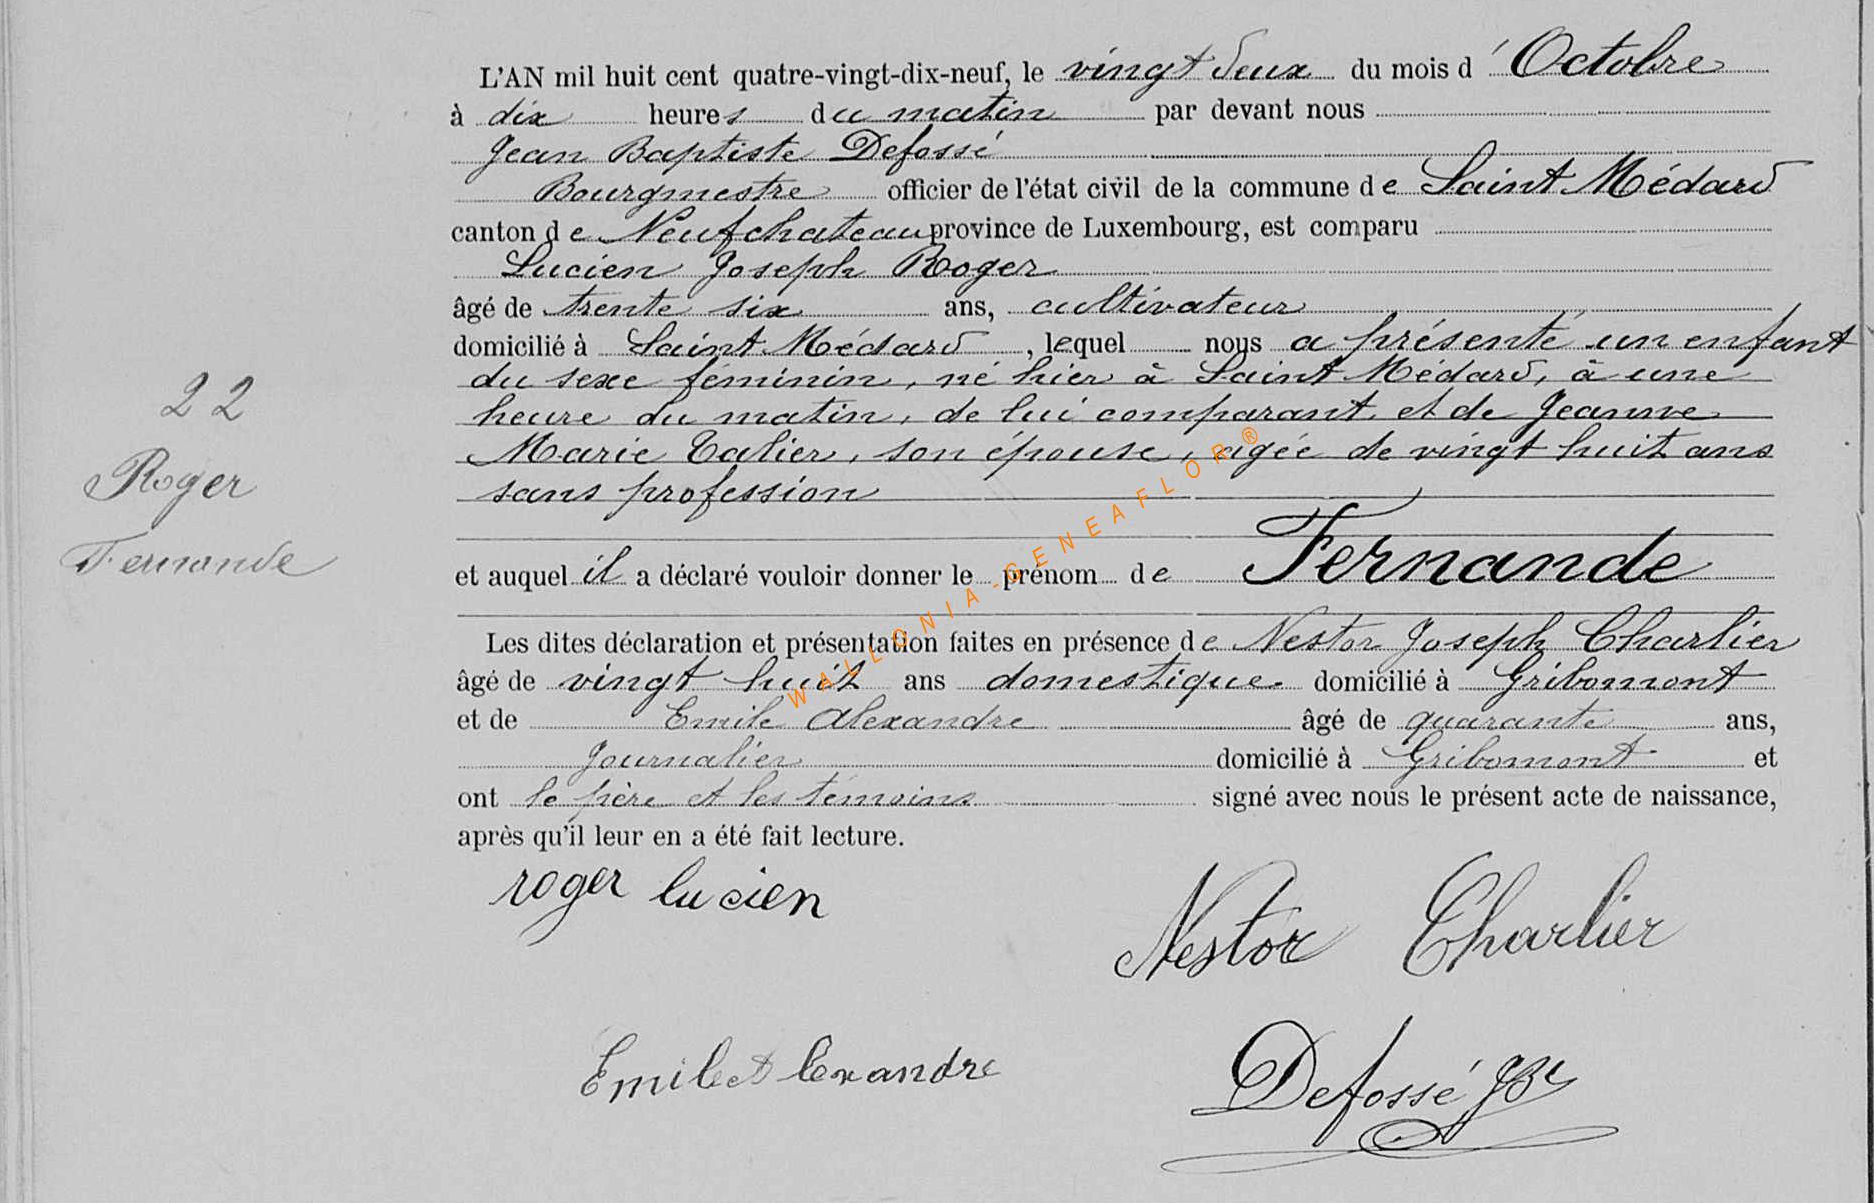 L'AN mil huit cent quatre-vingt-dix-neuf, le vingt deux du mois d'Octobre
à dix heures du matin par devant nous
Jean Baptiste Defossé
Bourgmestre officier de l'état civil de la commune de Saint Médard
canton de Neufchateau province de Luxembourg, est comparu
Lucien Joseph Roger
âgé de trente six ans, cultivateur
domicilié à Saint Médard, lequel nous a présenté un enfant
du sexe féminin, né hier à Saint Médard, à une
heure du matin, de lui comparant et de Jeanne
Marie Talier, son épouse, agée de vingt huit ans
sans profession
22
Roger
Fernande
et auquel il a déclaré vouloir donner le prénom de Fernande
Les dites déclaration et présentation faites en présence de Nestor Joseph Charlier
âgé de vingt huit ans domestique. domicilié à Gribomont
et de Emile Alexandre âgé de quarante ans,
Journalier domicilié à Gribomont et
ont le père et les témoins signé avec nous le présent acte de naissance,
après qu'il leur en a été fait lecture.
roger lucien
Nestor Charlier
Emile Alexandre
Defossé JBte
WALLONIA-GENEAFLOR®